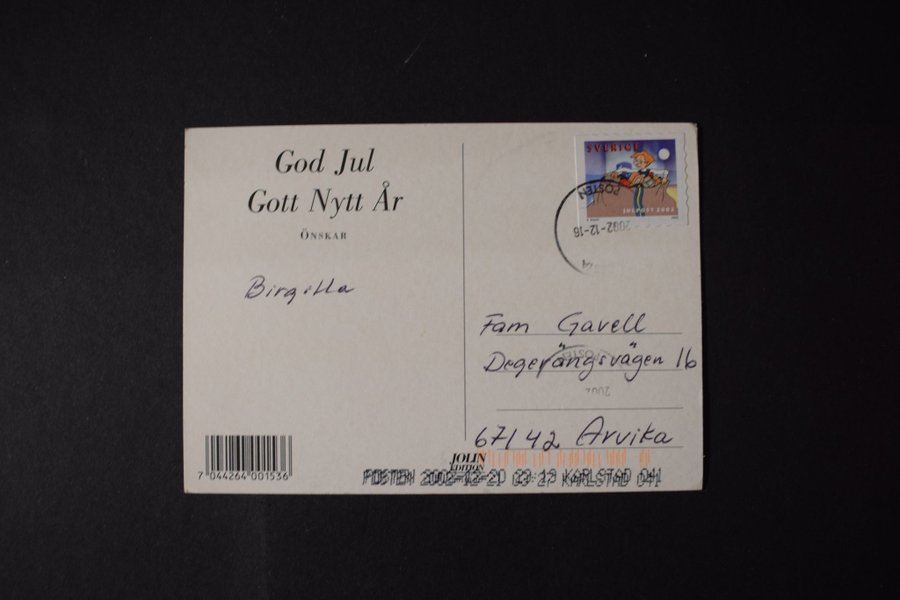 God Jul
Gott Nytt År
ÖNSKAR
Birgitta
SVERIGE
JULPOST 2002
POSTEN
2002-12-16
Fam Gavell
Degerängsvägen 16
POSTEN
2002
67142 Arvika
JOLIN
EDITION
7 044264 001536
POSTEN 2002-12-20 KARLSTAD 041